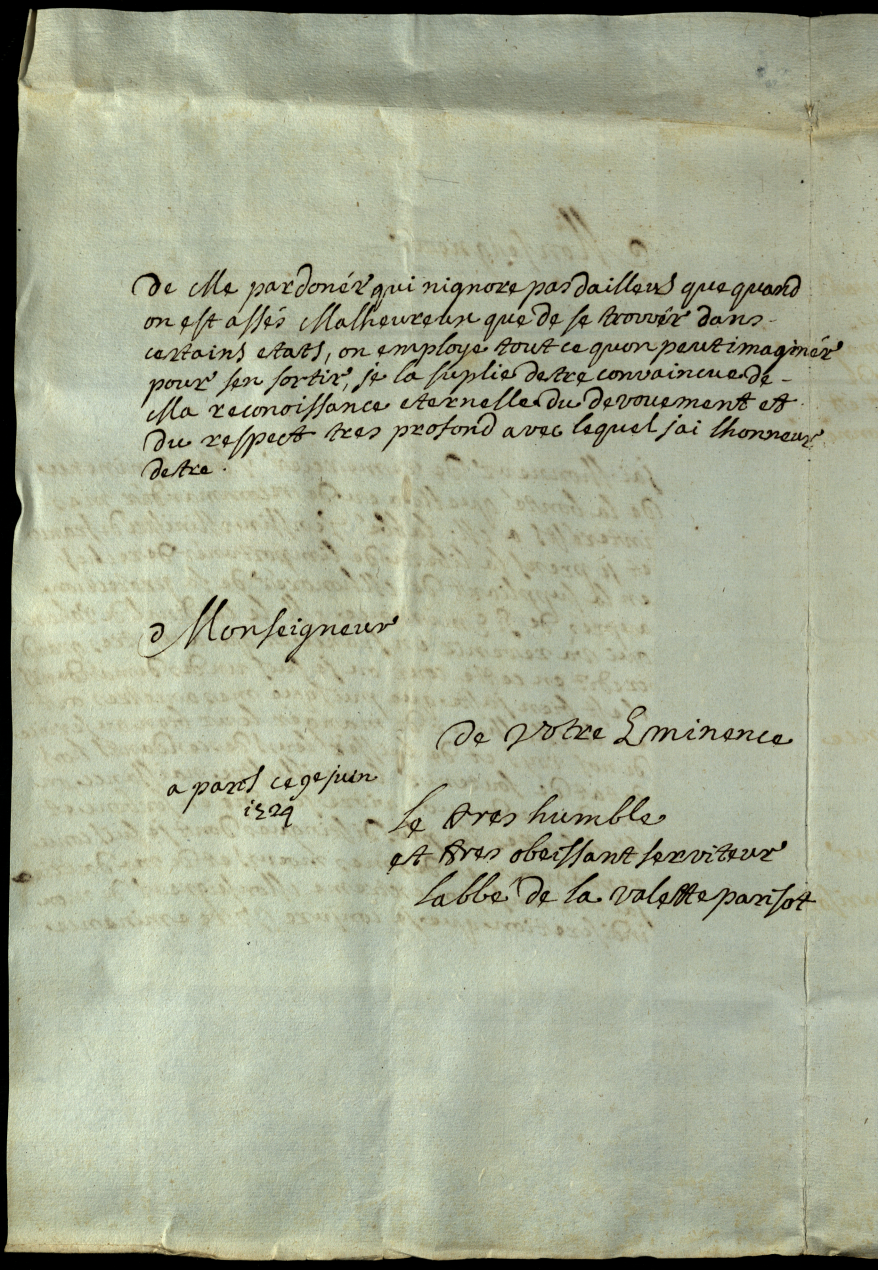 de Me pardonér qui nignore pas dailleurs que quand
on est assés Malheureux que de se trouvér dans
certains etats, on employe tout ce quon peut imaginér
pour sen sortir, je la suplie detre convaincue de
Ma reconoissance eternelle du devouement et
du respect tres profond avec lequel jai lhonneur
detre.
Monseigneur
de votre Eminence
a paris ce 9e juin
1724
le tres humble
et tres obeissant serviteur
labbé de la valette parisot